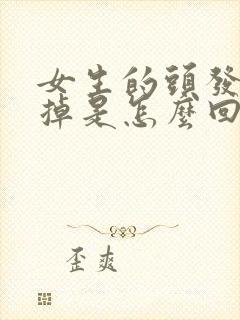 女生的頭發
掉是怎麼回
歪爽